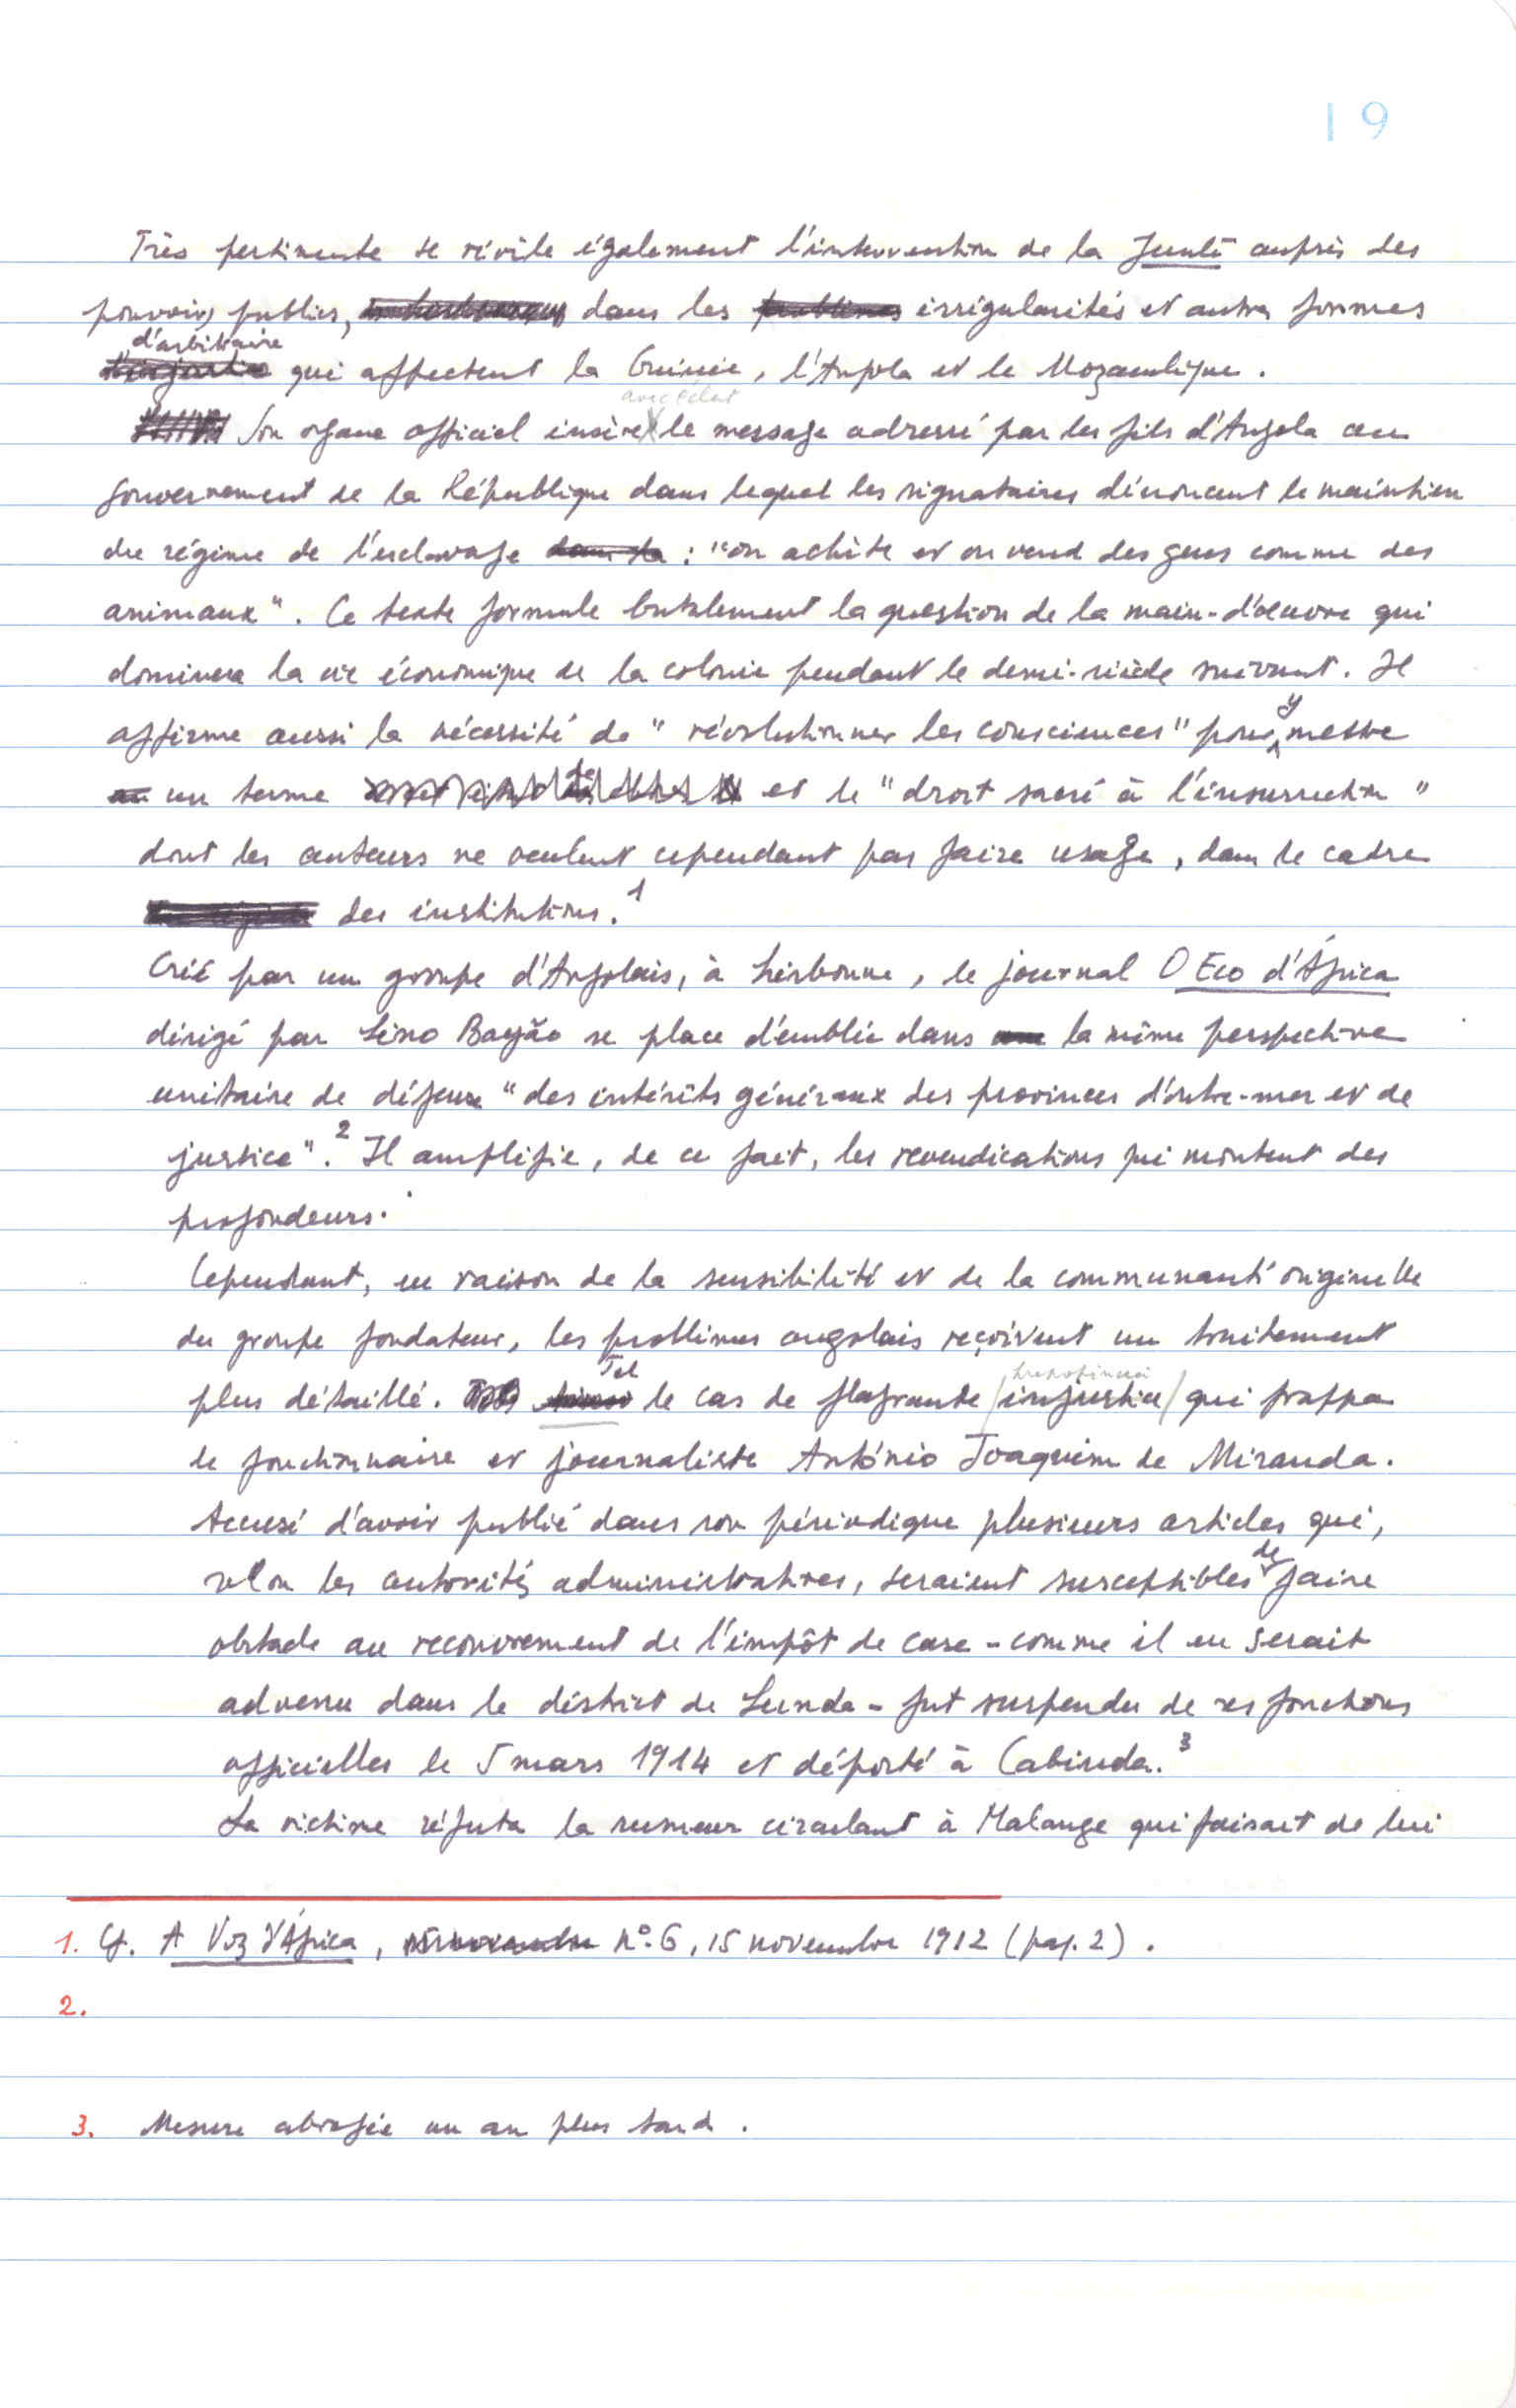 19
Très pertinente se révèle également l'intervention de la Junta auprès des
pouvoirs publics, dans les problèmes irrégularités et autres formes
d'arbitraire
qui affectent la Guinée, l'Angola et le Mozambique.
avec éclat
Son organe officiel insère le message adressé par les fils d'Angola au
gouvernement de la République dans lequel les signataires dénoncent le maintien
du régime de l'esclavage dans la : "on achète et on vend des gens comme des
animaux". Ce texte formule brutalement la question de la main-d'œuvre qui
dominera la vie économique de la colonie pendant le demi-siècle suivant. Il
affirme aussi la nécessité de "révolutionner les consciences" pour y mettre
un terme et le "droit sacré à l'insurrection"
dont les auteurs ne veulent cependant pas faire usage, dans le cadre
des institutions.1
Créé par un groupe d'Angolais, à Lisbonne, le journal O Eco d'África
dirigé par Lino Bayão se place d'emblée dans la même perspective
unitaire de défense "des intérêts généraux des provinces d'outre-mer et de
justice".2 Il amplifie, de ce fait, les revendications qui montent des
profondeurs.
Cependant, en raison de la sensibilité et de la communauté originelle
du groupe fondateur, les problèmes angolais reçoivent un traitement
plus détaillé. Tel le cas de flagrante injustice qui frappa
le fonctionnaire et journaliste António Joaquim de Miranda.
Accusé d'avoir publié dans son périodique plusieurs articles qui,
selon les autorités administratives, seraient susceptibles de faire
obstacle au recouvrement de l'impôt de case - comme il en serait
advenu dans le district de Lunda - fut suspendu de ses fonctions
officielles le 5 mars 1914 et déporté à Cabinda.3
La victime réfuta la rumeur circulant à Malange qui faisait de lui
1. Cf. A Voz d'África, nº 6, 15 novembre 1912 (pag. 2).
2.
3. Mesure abrogée un an plus tard.